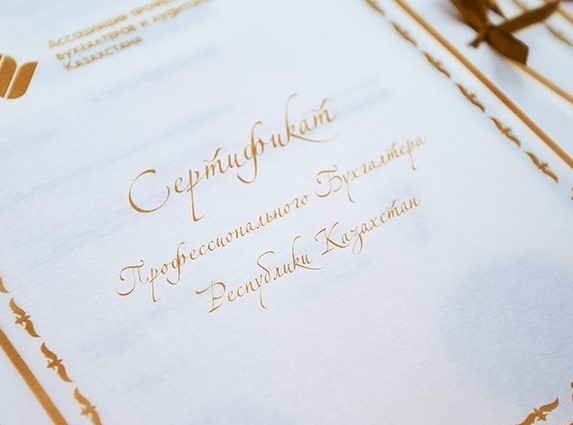 Ассоциация профессиональных
бухгалтеров и аудиторов
Казахстана
Сертификат
Профессионального Бухгалтера
Республики Казахстан